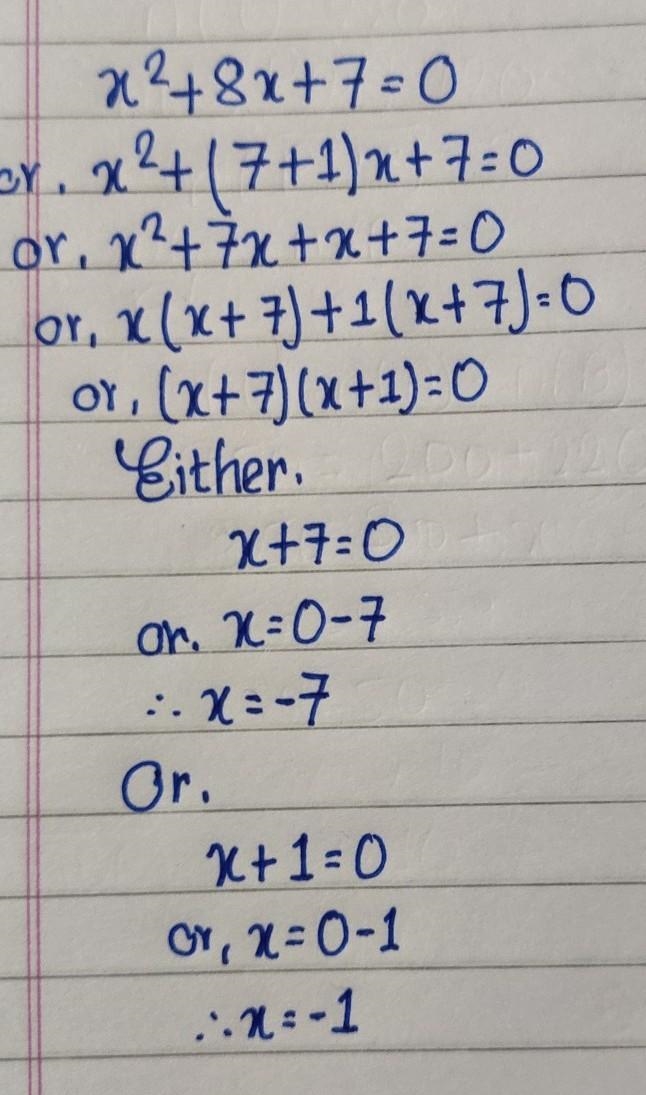 x²+8x+7=0
or. x²+(7+1)x+7=0
or, x²+7x+x+7=0
or, x(x+7)+1(x+7)=0
or, (x+7)(x+1)=0
Either.
x+7=0
or. x=0-7
∴ x=-7
Or.
x+1=0
or, x=0-1
∴ x=-1